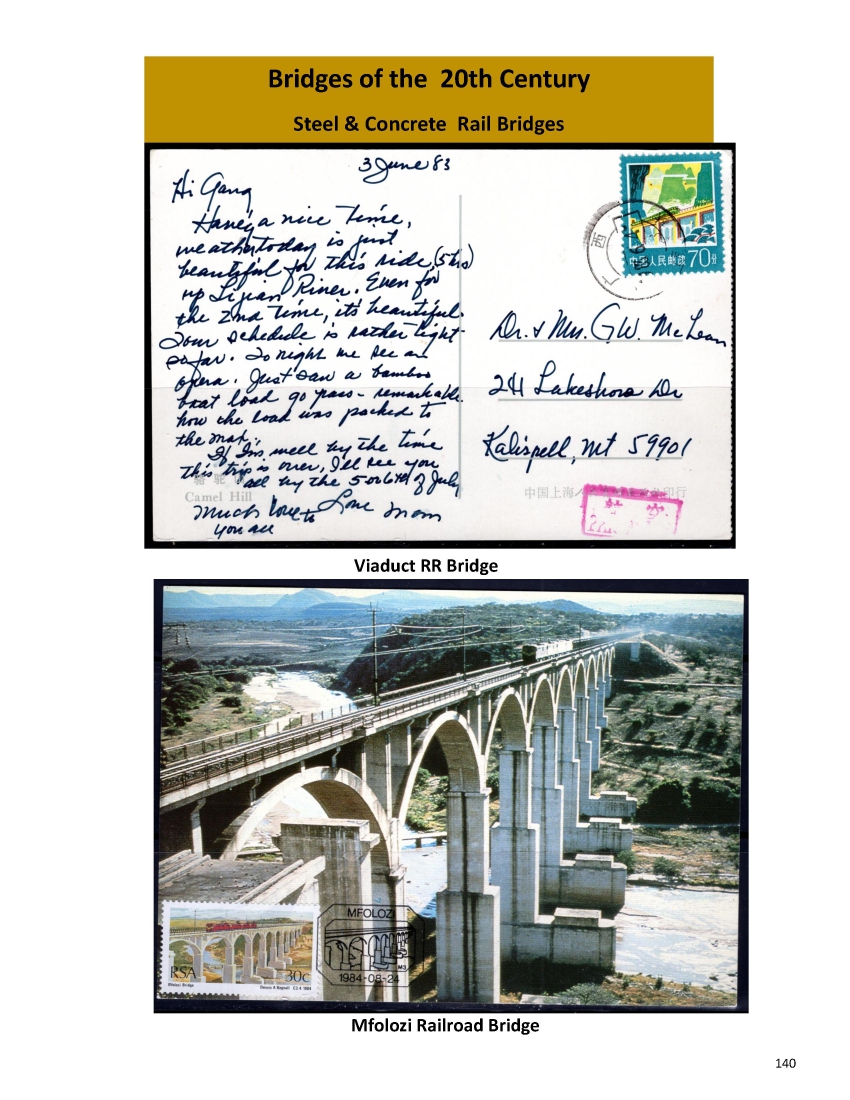 Bridges of the 20th Century
Steel & Concrete Rail Bridges
3 June 83
Hi Gang
Having a nice time,
weather today is just
beautiful for this ride (5 hrs)
up Lijian River. Even for
the 2nd time, it's beautiful.
Tour schedule is rather light
so far. Tonight we see an
opera. Just saw a bamboo
boat load go pass - remarkable
how the load was packed to
the max.
If I'm well by the time
this trip is over, I'll see you
all by the 5 or 6th of July
Much love to Love Mom
you all
Camel Hill
中国人民邮政 70分
西
Dr. & Mrs. G.W. McLean
211 Lakeshore Dr
Kalispell, Mt 59901
中国上海人
印行
航空
Viaduct RR Bridge
RSA 30c
Mfolozi Bridge
MFOLOZI
M3
1984-08-24
Mfolozi Railroad Bridge
140